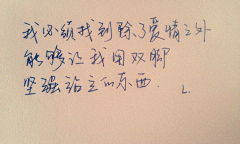 我必须找到除了爱情之外
能够让我用双脚
坚强站立的东西.
L.